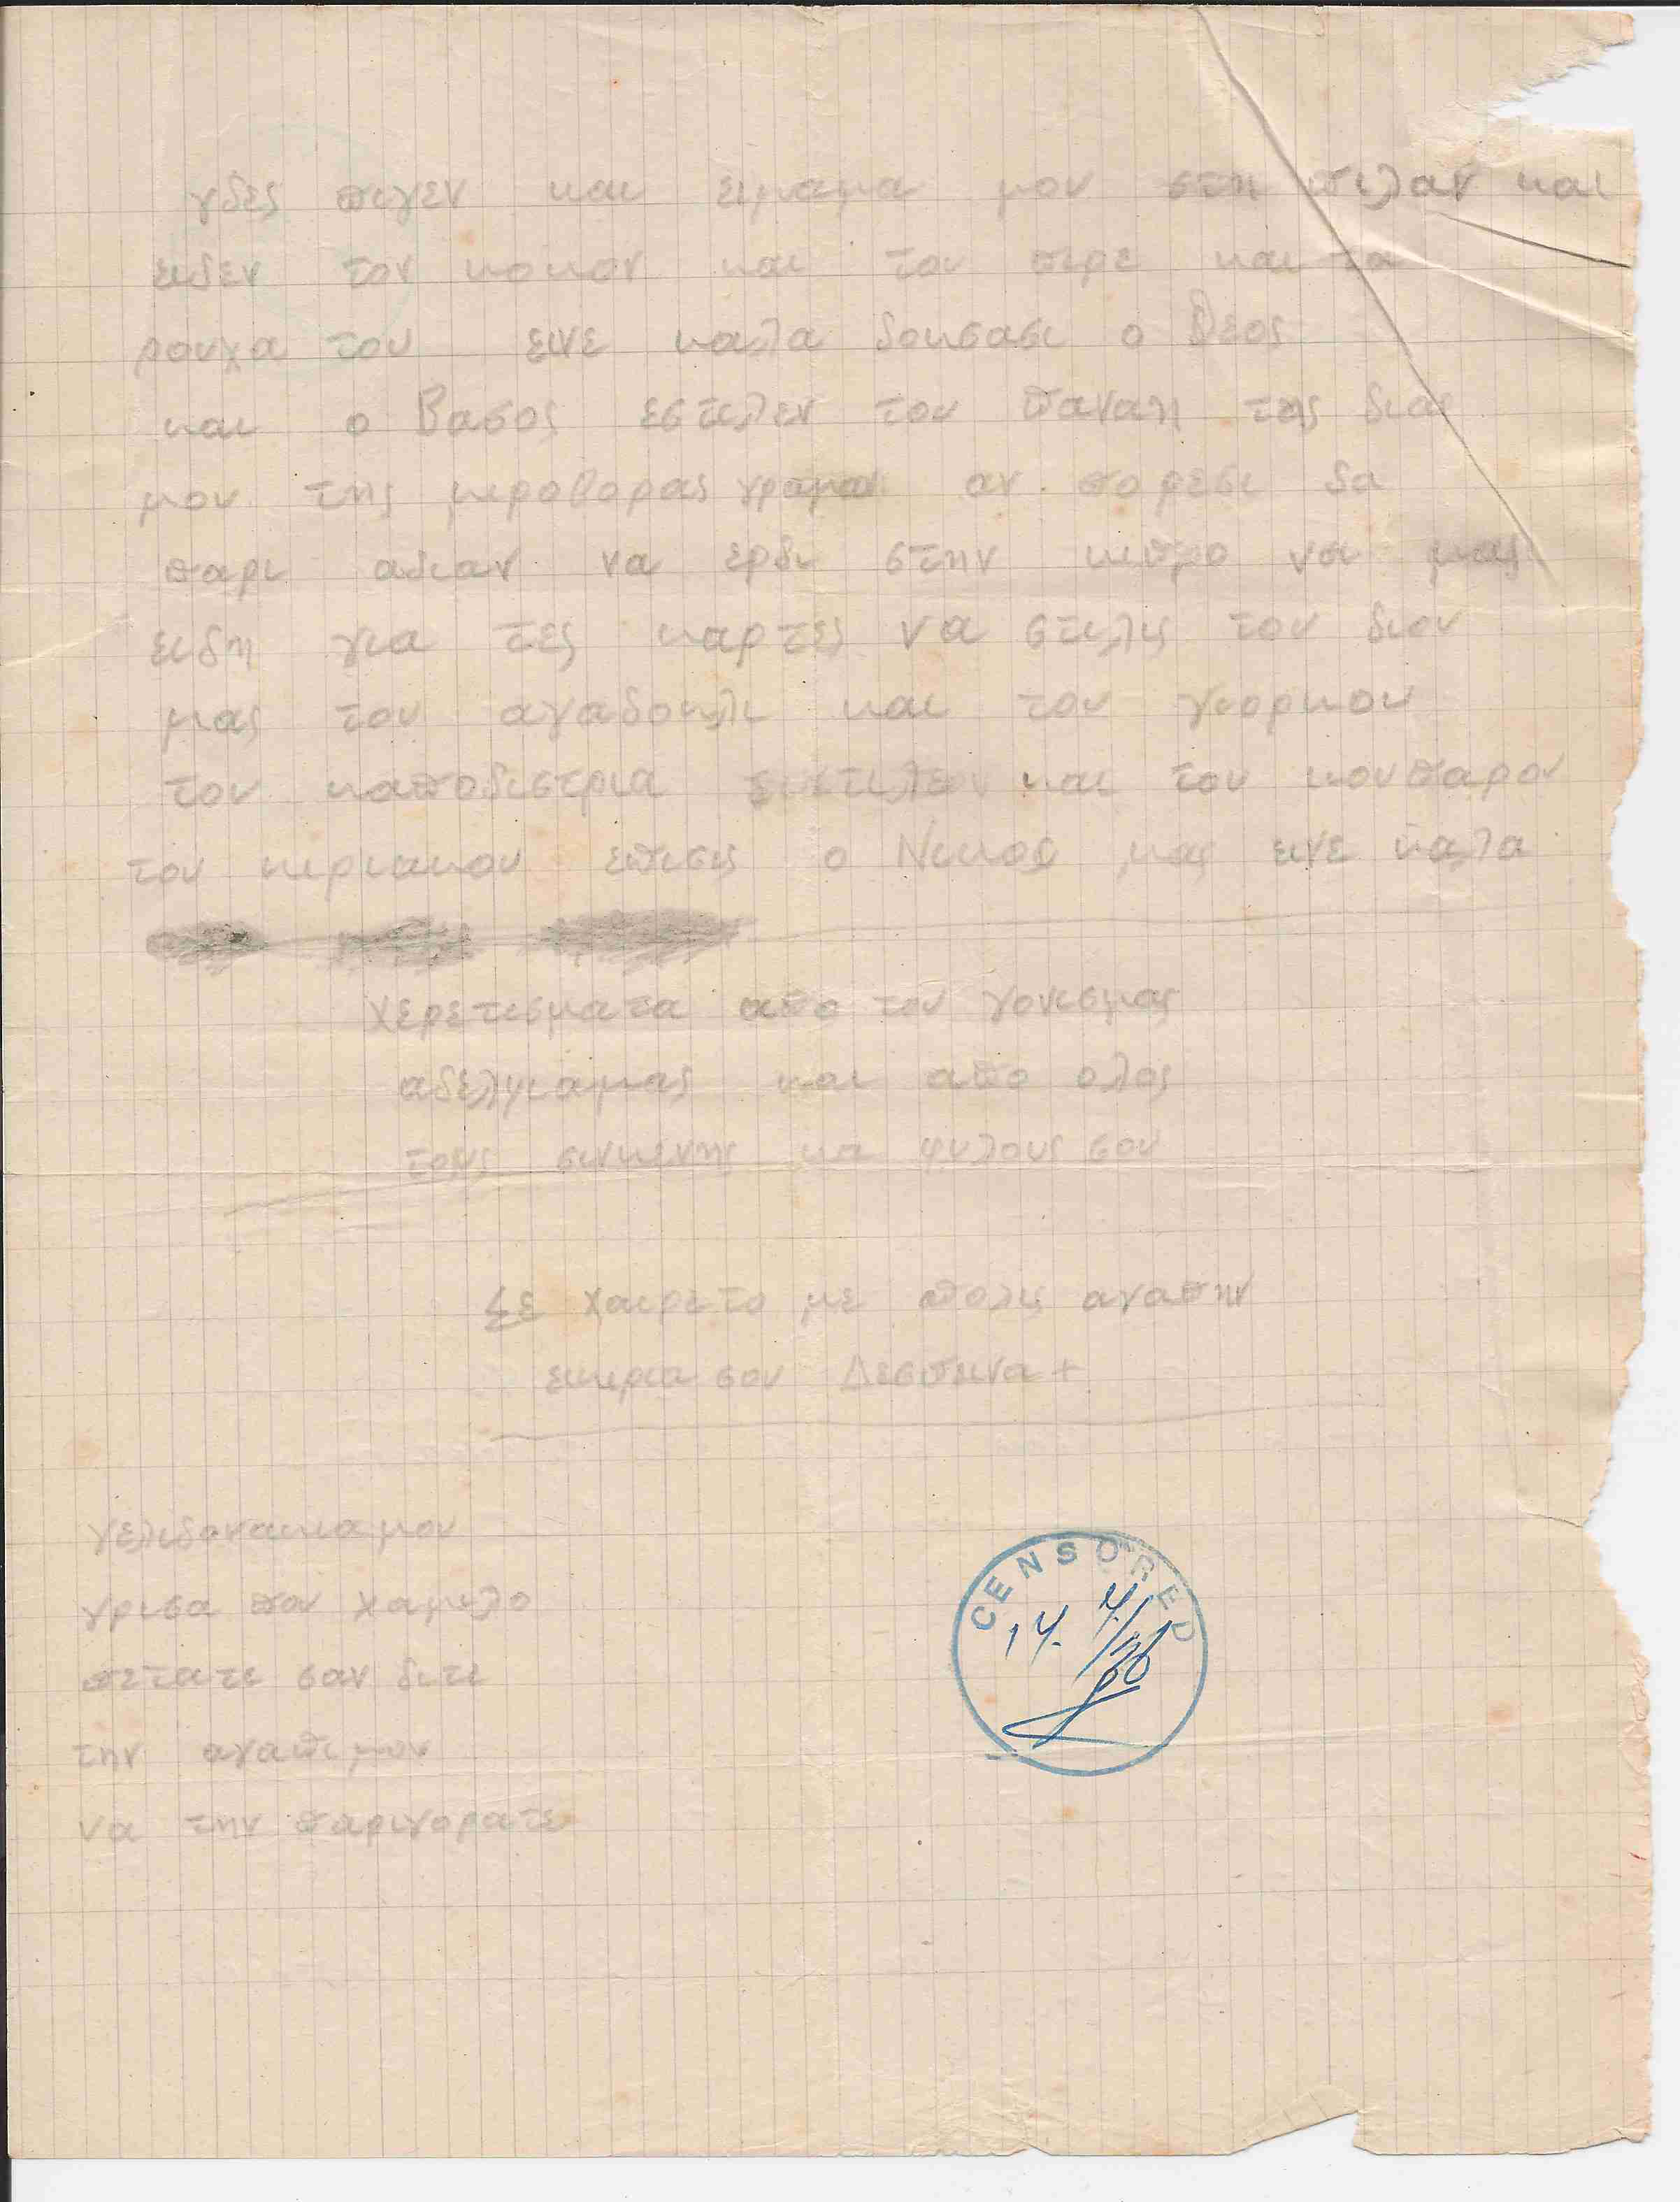 γδες πιγεν και ειμαμα μου στη πιλαν και
ειδεν τον κοκον και του πιρε και τα
ρουχα του εινε καλα δοκσασι ο θεος
και ο Βασος εστιλεν του παναη της διας
μου της μιροφορας γραμαν αν πορεσι δα
παρι αδιαν να ερδι στην κιπρο να μας
ειδη για τες καρτες να στιλις του διου
μας του αγαδοκλι και του γιορκου
του καποδιστρια και του κουπαρου
του κιριακου επισις ο Νικος μας εινε καλα
χερετισματα απο του γονισμας
αδελφιαμας και απο ολος
τους σινκενης κα φιλους σου
Σε χαιρετο με πολις αγαπην
εικιρια σου Δεσπινα +
γελιδονακιαμου
γρισα που χαμιλο
πετατε σαν διτε
την αγαπι μου
να την παριγορατε
CENSORED
14. 4/56